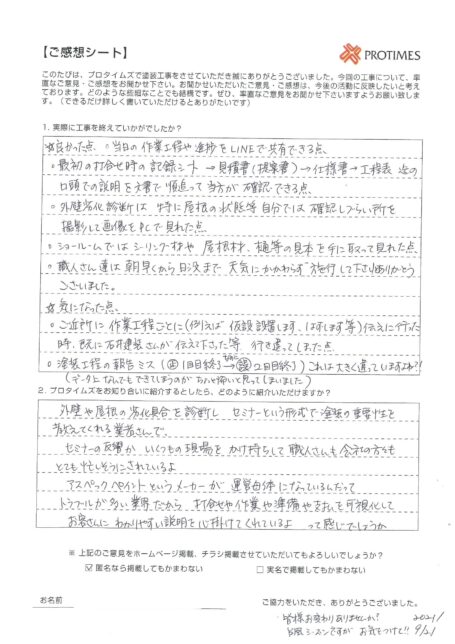 【ご感想シート】
PROTIMES
このたびは、プロタイムズで塗装工事をさせていただき誠にありがとうございました。今回の工事について、率
直なご意見・ご感想をお聞かせ下さい。お聞かせいただいたご意見・ご感想は、今後の活動に反映したいと考え
ております。どのような些細なことでも結構です。ぜひ、率直なご意見をお聞かせ下さいますようお願い致しま
す。(できるだけ詳しく書いていただけるとありがたいです)
1. 実際に工事を終えていかがでしたか?
☆良かった点、○当日の作業工程や進捗をLINEで共有できる点、
○最初の打合せ時の記録シート→見積書(提案書)→仕様書→工程表 迄の
口頭での説明を文書で順追って当方が確認できる点
○外壁劣化診断は 特に屋根の状態等 自分では確認しづらい所を
撮影して画像を見れた点
○ショールームではシーリング材や屋根材、樋等の見本を手に取って見れた点
○職人さん達は朝早くから日没まで 天気にかかわらず施行して下さりありがとう
ございました。
☆気になった点、
○ご近所に作業工程ごとに(例えば仮設設置します、はずします等)伝えに行った
時、既に石井建装さんが伝えて下さった等 行き違ってしまった点
○塗装工程の報告ミス (1回目終了→2回目終了) これは大きく違っていますよね?!
2. プロタイムズをお知り合いに紹介するとしたら、どのように紹介いただけますか?
外壁や屋根の劣化具合を診断し セミナーという形式で塗装の重要性を
教えてくれる業者さんで、
セミナーの反響か いくつもの現場をかけ持ちして職人さんも会社の方も
とても忙しそうにされているよ
アステックペイントというメーカーが 運営母体になっているんだって
トラブルが多い業界だから 打合せや作業や準備や を可視化して
お客さんにわかりやすい説明を心掛けてくれているよ って感じでしょうか
※ 上記のご意見をホームページ掲載、チラシ掲載させていただいてもよろしいでしょうか?
☒ 匿名なら掲載してもかまわない □ 実名で掲載してもかまわない
お名前
ご協力をいただき、ありがとうございました。
皆様お変わりありませんか? 2021/
台風シーズンですが お気をつけて!! 9/21